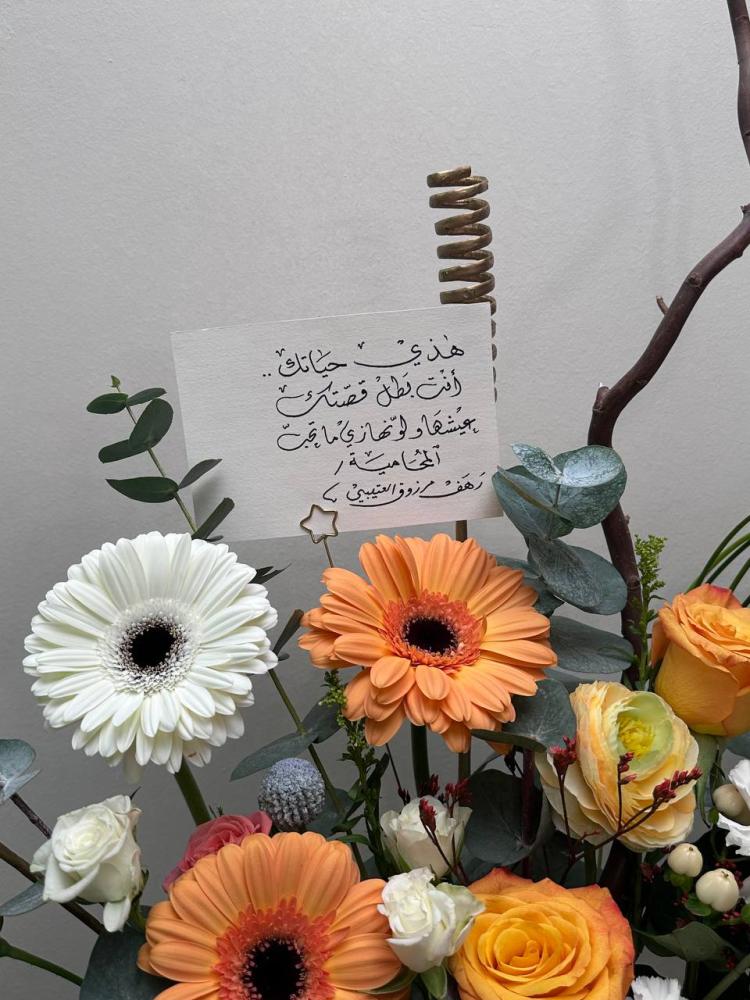 هٰذي حياتك ..
أنت بَطل قصّتك
عِيْشهَا ولو نهازي ما تحبّ
المحُامية /
رَهَف مرزوق العتيبي